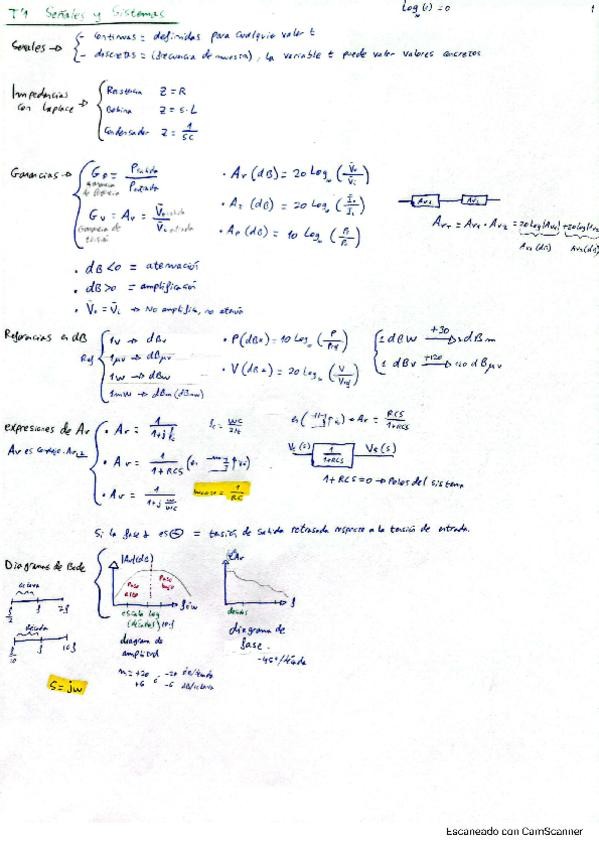 T4 Señales y Sistemas
Log₁₀(1) = 0
1
Señales → - continuas = definidas para cualquier valor t
- discretas = (frecuencia de muestra), la variable t puede valer valores concretos
Impedancias con Laplace →
Resistencia Z = R
Bobina Z = s·L
Condensador Z = 1/SC
Ganancias →
Gp = Psalida/Pentrada
ganancia de potencia
Gv = Av = V̄o salida/V̄i entrada
ganancia de tensión
· Av (dB) = 20 Log₁₀ (V̄o/V̄i)
· AI (dB) = 20 Log₁₀ (Īo/Īi)
· Ap (dB) = 10 Log₁₀ (Po/Pi)
Av1 Av2
AvT = Av1 · Av2 = 20 log|Av1| + 20 log|Av2|
Av1(dB) Av2(dB)
· dB<0 = atenuación
· dB>0 = amplificación
· V̄o = V̄i → No amplifica, no atenúa
Referencias en dB
Ref
1V → dBv
1μv → dBμv
1W → dBw
1mW → dBm (dBmw)
· P(dBx) = 10 Log₁₀ (P/Pref)
· V(dBx) = 20 Log₁₀ (V/Vref)
1 dBW +30 → dBm
1 dBV +120 → dBμv
expresiones de Av
· Av = 1/(1+j
fc = wc/2π
· Av = 1/(1+RCS) (en
Vo)
wc = 1/RC
· Av = 1/(1+j w/wc)
en ( ) → Av = RCS/(1+RCS)
Ve(s) 1/(1+RCS) Vs(s)
1+RCS=0 → Polos del sistema
Si la fase es ⊖ = tensión de salida retrasada respecto a la tensión de entrada.
Diagramas de Bode
octava
f/2 f 2f
década
f/10 f 10f
|Av|(dB)
Paso alto
Paso bajo
f,w
escala log
(décadas) 10·f
diagrama de
amplitud
m = +20 o -20 dB/década
+6 -6 dB/octava
φAv
f
décadas
diagrama de
fase.
-45°/década
S = jw
Escaneado con CamScanner